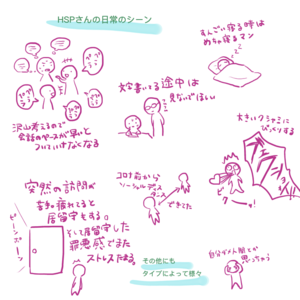 HSPさんの日常のシーン
すんごい寝る時は
めちゃ寝るマン
沢山考えるので
会話のペースが早いと
ついていけなくなる
文字書いてる途中は
見ないでほしい
大きいクシャミに
びっくりする
クシューッ!
突然の訪問が
苦手疲れてると
居留守をする。
そして居留守した
罪悪感でまた
ストレスたまる。
ピーンポーン
コロナ前から
ソーシャルディス
タンス
できてた
その他にも
タイプによって様々
自分ダメ人間とか
思っちゃう